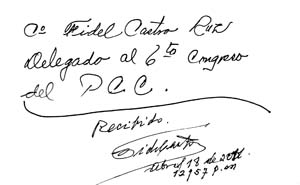 Co Fidel Castro Ruz
Delegado al 6to Congreso
del P.C.C.
Recibido.
Fidel Castro
Abril 18 de 2011
12 y 57 p.m